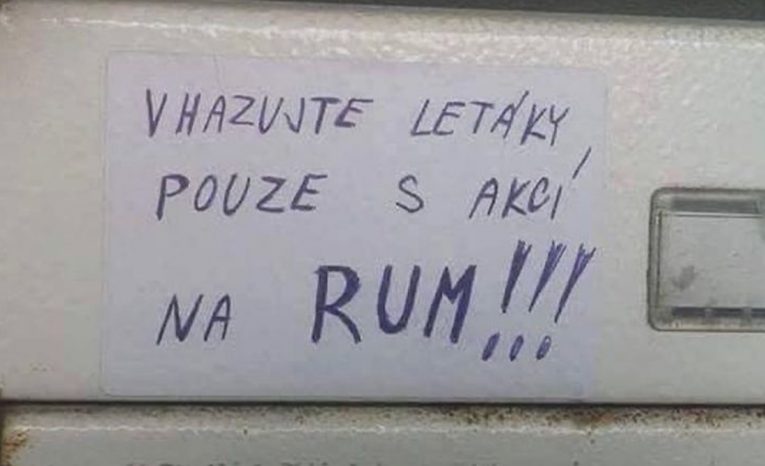 VHAZUJTE LETÁKY
POUZE S AKCÍ
NA RUM!!!